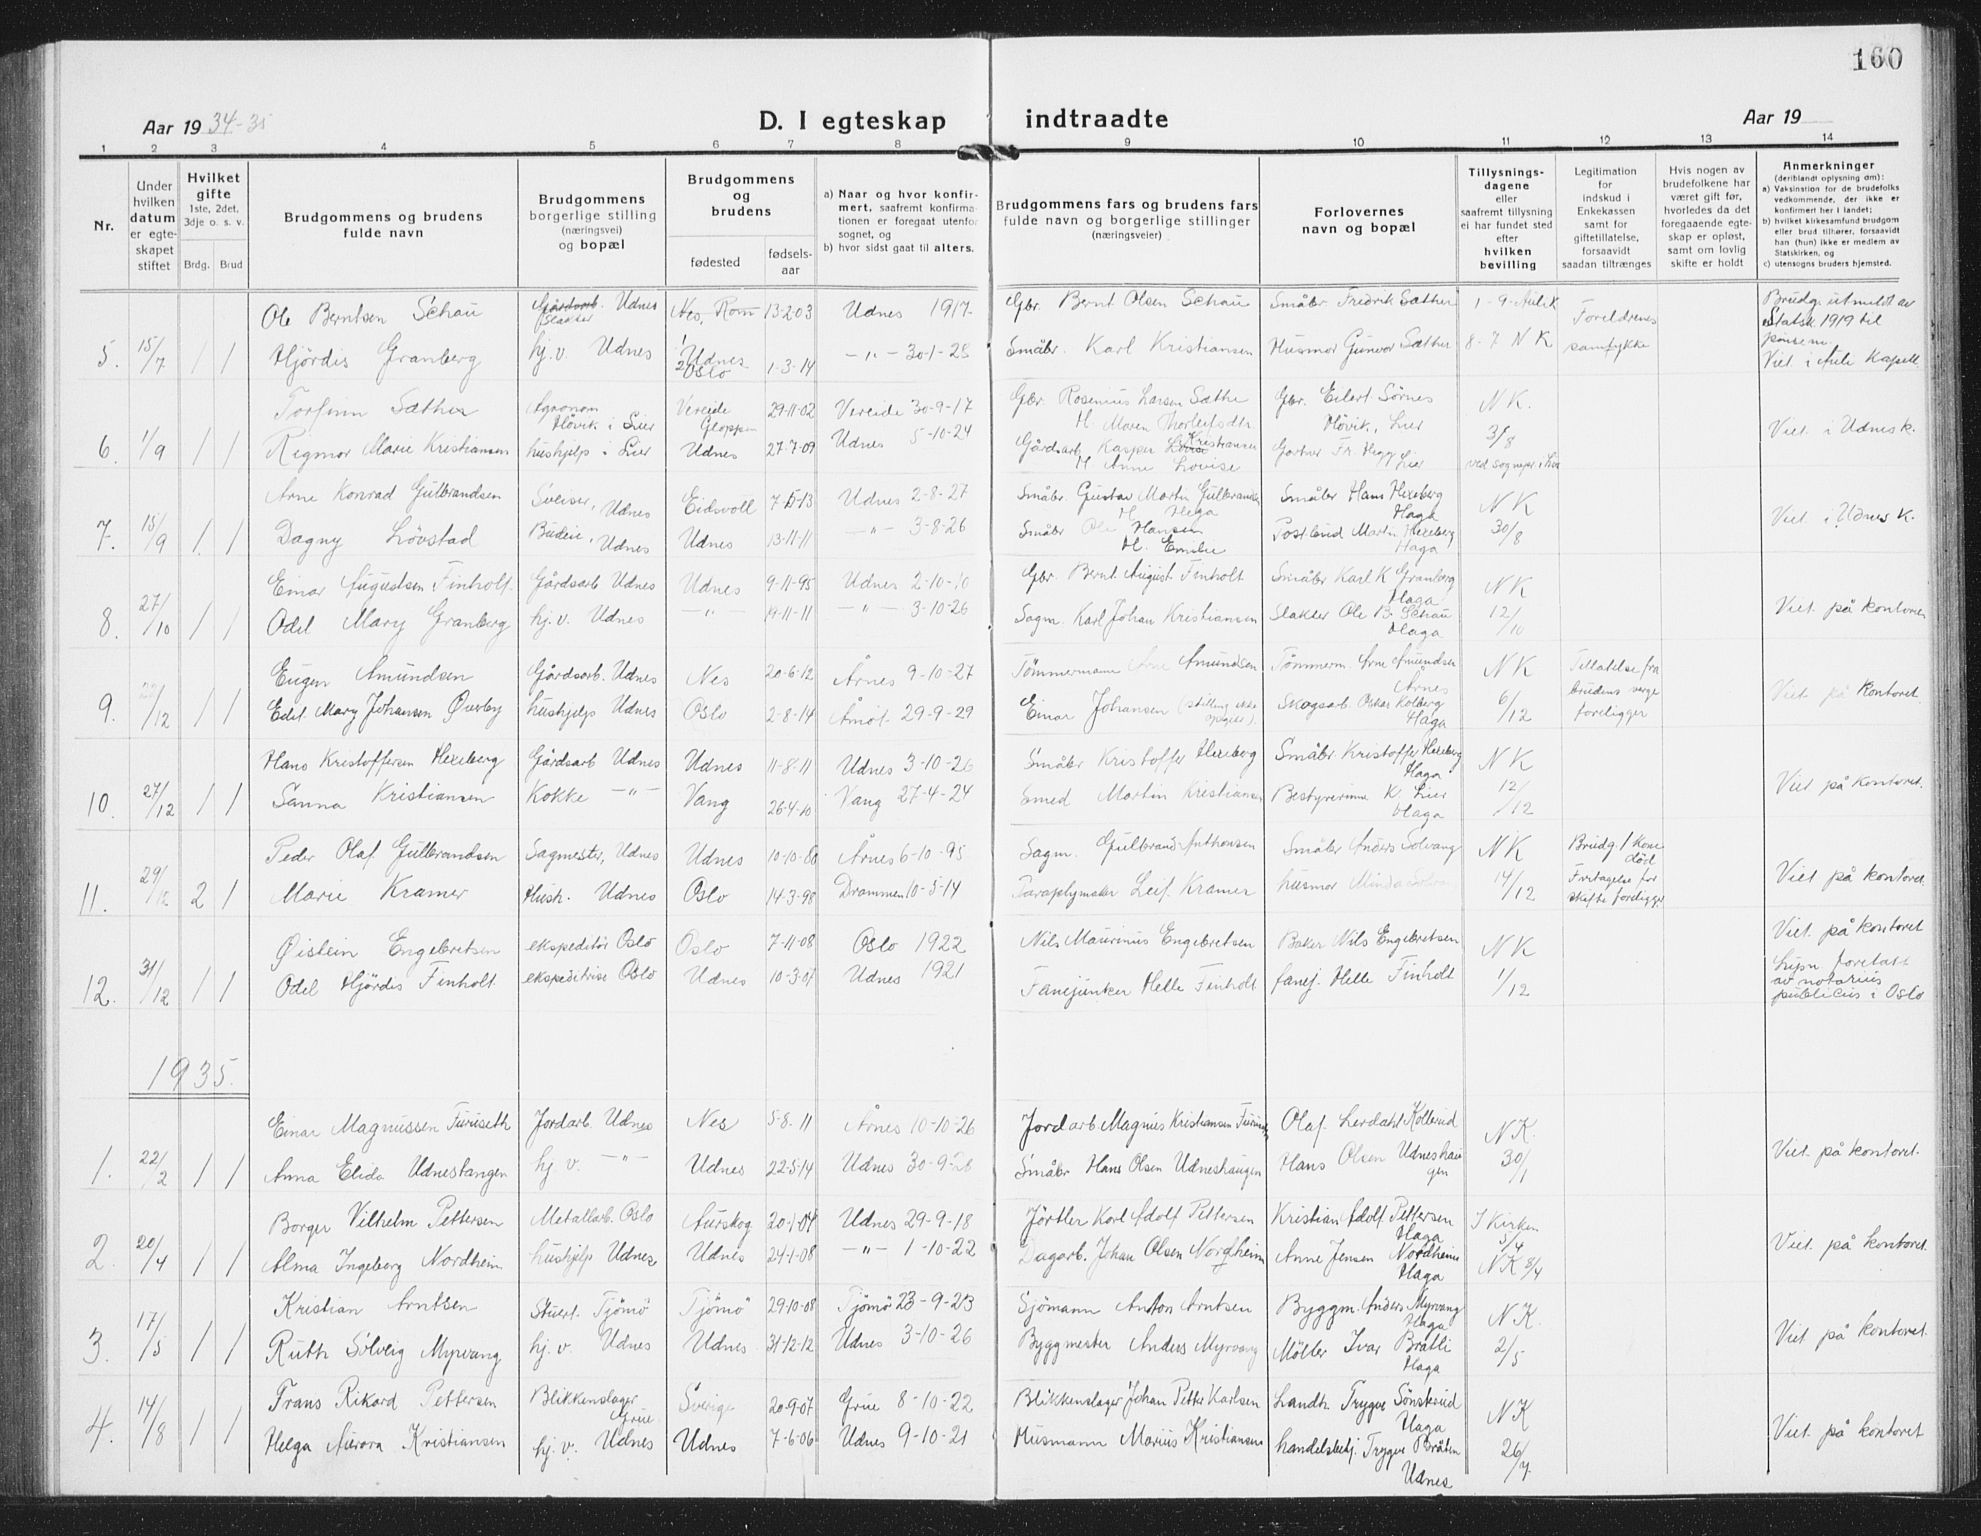 160
Aar 19 34-35
D. I egteskap indtraadte
Aar 19
1 2 3 4 5 6 7 8 9 10 11 12 13 14
Nr.
Under hvilken datum er egte- skapet stiftet
Hvilket gifte 1ste, 2det, 3dje o. s. v.
Brdg. Brud
Brudgommens og brudens fulde navn
Brudgommens borgerlige stilling (næringsvei) og bopæl
Brudgommens og brudens
fødested
fødsels- aar
a) Naar og hvor konfir- mert, saafremt konfirma- tionen er foregaat utenfor sognet, og
b) hvor sidst gaat til alters.
Brudgommens fars og brudens fars fulde navn og borgerlige stillinger (næringsveier)
Forlovernes navn og bopæl
Tillysnings- dagene eller saafremt tillysning ei har fundet sted efter hvilken bevilling
Legitimation for indskud i Enkekassen samt for giftetillatelse, forsaavidt saadan tiltrænges
Hvis nogen av brudefolkene har været gift før, hvorledes da det foregaaende egte- skap er opløst, samt om lovlig skifte er holdt
Anmerkninger (deriblandt oplysning om):
a) Vaksinstion for de brudefolks vedkommende, der ikke er konfirmert her i landet;
b) hvilket kirkesamfund brudgom eller brud tilhører, forsaavidt han (hun) ikke er medlem av Statskirken, og
c) utensogns bruders hjemsted.
Ole Berntsen Schau Gårdsarb. Slakter Udnes Nes, Rom 13-2-03 Udnes 1917 Gbr. Bernt Olsen Schau Småbr Fredrik Sæther 1-9-Aulik Foreldrenes Brudg. utmeldt av Statsk 1919 til
5. 15/7 1 1 Hjördis Granberg hj.v. Udnes Udnes Oslo 1-3-14 -"- 30-1-28 Småbr. Karl Kristiansen Husmor Gunvor Sæther 8-7 NK samtykke Viet i Aule Kapell
Torfinn Sæther Agronom Hövik i Lier Vereide Gloppen 29-11-02 Vereide 30-9-17 Gbr. Rosenius Larsen Sæthe H. Maren Thorleifsdtr Gbr. Eilert Sørnes Hövik, Lier NK.
6. 1/9 1 1 Rigmor Marie Kristiansen hushjelp i Lier Udnes 27-7-09 Udnes 5-10-24 Gårdsarb Kasper Kristiansen H. Anne Lovise Gartner Fr. Hegg Lier 31/8 ved sognepr. i Lier Viet i Udnes k.
Arne Konrad Gulbrandsen Sveiser, Udnes Eidsvoll 7-5-13 Udnes 2-8-27 Småbr. Gustav Martin Gulbrandsen H. Helga Småbr Hans Hexeberg Haga NK
7. 15/9 1. 1 Dagny Lövstad Budeie, Udnes Udnes 13-11-11 -"- 3-8-26 Småbr Ole Hansen H. Emilie Postbud Martin Hexeberg Haga 30/8 Viet i Udnes K.
Einar Augustsen Finholt. Gårdsarb Udnes Udnes 9-11-95 Udnes 2-10-10 Gbr. Bernt August Finholt Småbr Karl K Granberg Haga NK
8. 27/10 1 1 Odel Mary Granberg hj.v. Udnes -"- 19-11-11 -"- 3-10-26 Sagm. Karl Johan Kristiansen Slakter Ole B. Schau Haga 12/10 Viet på kontoret
Eugen Amundsen Gårdsarb. Udnes Nes 20-6-12 Årnes 9-10-27 Tömmermann Arne Amundsen Tömmerm. Arne Amundsen Årnes NK Tillatelse fra
9. /12 1 1 Edit Mary Johansen Øverby hushjelp Udnes Oslo 2-8-14 Åmot 29-9-29 Einar Johansen (stilling ikke opgitt). Skogsarb Oskar Kolberg Haga 6/12 brudens verge foreligger Viet på kontoret
Hans Kristoffersen Hexeberg Gårdsarb Udnes Udnes 11-8-11 Udnes 3-10-26 Småbr Kristoffer Hexeberg Småbr. Kristoffer Hexeberg Haga NK
10. 27/12 1 1 Sanna Kristiansen Kokke -"- Vang 26-4-10 Vang 27-4-24 Smed Martin Kristiansen Bestyrerinne K Lier Haga 12/12 Viet på kontoret.
Peder Olaf Gulbrandsen Sagmester, Udnes Udnes 10-10-80 Årnes 6-10-95 Sagm. Gulbrand Anthonsen Småbr Anders Solvang NK Brudg. 1 kone død
11. 29/12 2 1 Marie Kramer Hush. Udnes Oslo 14-3-98 Drammen 10-5-14 Paraplymaker Leif Kramer husmor Minda 14/12 skifte foreligger Viet på kontoret.
Øistein Engebretsen ekspeditör Oslo Oslo 7-11-08 Oslo 1922 Nils Maurinus Engebretsen Baker Nils Engebretsen NK Viet på kontoret
12. 31/12 1 1 Odel Hjördis Finholt ekspeditrise Oslo Udnes 10-3-07 Udnes 1921 Fanejunker Helle Finholt fanej. Helle Finholt 1/12 Lysn. foretatt av notarius publicus i Oslo
1935.
Einar Magnussen Furuseth Jordarb. Udnes Nes 5-8-11 Årnes 10-10-26 Jordarb. Magnus Kristiansen Furuseth Olaf Lerdahl Kollerud NK.
1. 22/2 1 1 Anna Elida Udnestangen hj.v. -"- Udnes 22-5-14 Udnes 30-9-28 Småbr Hans Olsen Udneshaugen Hans Olsen Udneshaugen 30/1 Viet på kontoret.
Borger Vilhelm Pettersen Metallarb. Oslo Aurskog 20-1-04 Udnes 29-9-18 Karl Adolf Pettersen Kristian Adolf Pettersen Haga I Kirken 5/4
2. 20/4 1 1 Alma Ingeborg Nordheim hushjelp Udnes Udnes 24-1-08 -"- 1-10-22 Dagarb. Johan Olsen Nordheim Anne Jensen Nordheim Haga NK 8/4 Viet på kontoret.
Kristian Arntsen Stuert. Tjömö Tjömö 29-10-08 Tjömö 23-9-23 Sjömann Anton Arntsen Byggm. Anders Myrvang Haga NK.
3. 17/5 1 1 Ruth Solveig Myrvang hj.v. Udnes Udnes 31-12-12 Udnes 3-10-26 Byggmester Anders Myrvang Möller Ivar Bråtli Haga 2/5 Viet på kontoret.
Frans Rikard Pettersen Blikkenslager Grue Sverige 20-9-07 Grue 8-10-22 Blikkenslager Johan Petter Karlsen Landh. Trygve Sönsterud Haga NK
4. 14/8 1 1 Helga Aurora Kristiansen hj.v. Udnes Udnes 7-6-06 Udnes 9-10-21 Husmann Marius Kristiansen handelsbetj. Trygve Bråten Udnes 26/7 Viet på kontoret